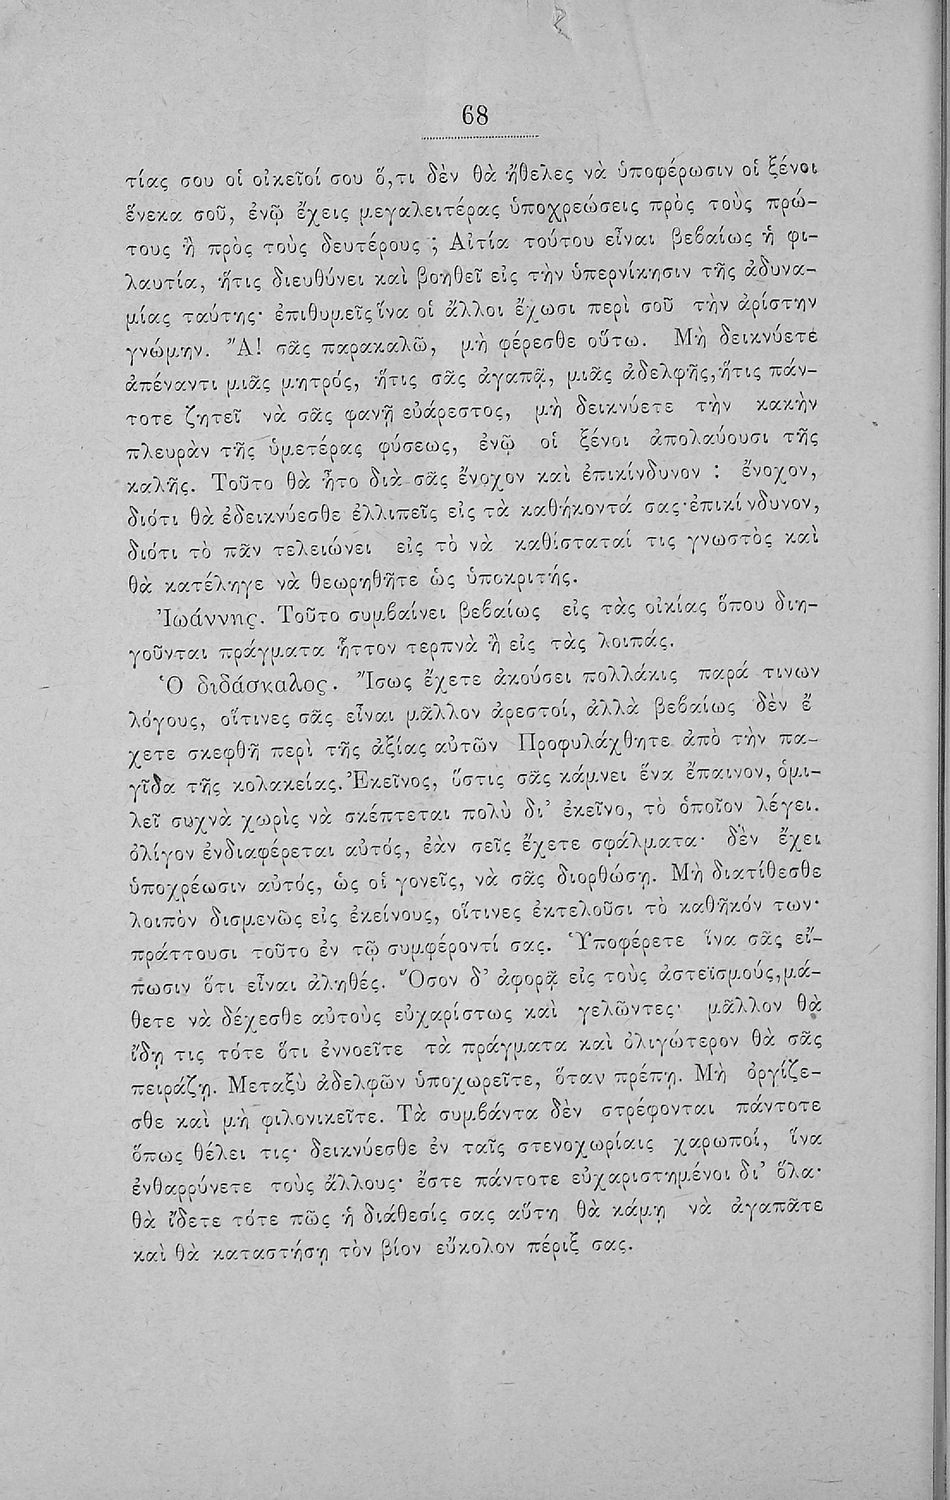 68
τίας σου οἱ οἰκεῖοί σου ὅ,τι δὲν θὰ ἤθελες νὰ ὑποφέρωσιν οἱ ξένοι
ἕνεκα σοῦ, ἐνῷ ἔχεις μεγαλειτέρας ὑποχρεώσεις πρὸς τοὺς πρώ-
τους ἢ πρὸς τοὺς δευτέρους ; Αἰτία τούτου εἶναι βεβαίως ἡ φι-
λαυτία, ἥτις διευθύνει καὶ βοηθεῖ εἰς τὴν ὑπερνίκησιν τῆς ἀδυνα-
μίας ταύτης· ἐπιθυμεῖς ἵνα οἱ ἄλλοι ἔχωσι περὶ σοῦ τὴν ἀρίστην
γνώμην. Ἄ! σᾶς παρακαλῶ, μὴ φέρεσθε οὕτω. Μὴ δεικνύετε
ἀπέναντι μιᾶς μητρός, ἥτις σᾶς ἀγαπᾷ, μιᾶς ἀδελφῆς, ἥτις πάν-
τοτε ζητεῖ νὰ σᾶς φανῇ εὐάρεστος, μὴ δεικνύετε τὴν κακὴν
πλευρὰν τῆς ὑμετέρας φύσεως, ἐνῷ οἱ ξένοι ἀπολαύουσι τῆς
καλῆς. Τοῦτο θὰ ἦτο διὰ σᾶς ἔνοχον καὶ ἐπικίνδυνον : ἔνοχον,
διότι θὰ ἐδεικνύεσθε ἐλλιπεῖς εἰς τὰ καθήκοντά σας· ἐπικίνδυνον,
διότι τὸ πᾶν τελειώνει εἰς τὸ νὰ καθίσταταί τις γνωστὸς καὶ
θὰ κατέληγε νὰ θεωρηθῆτε ὡς ὑποκριτής.
Ἰωάννης. Τοῦτο συμβαίνει βεβαίως εἰς τὰς οἰκίας ὅπου διη-
γοῦνται πράγματα ἧττον τερπνὰ ἢ εἰς τὰς λοιπάς.
Ὁ διδάσκαλος. Ἴσως ἔχετε ἀκούσει πολλάκις παρά τινων
λόγους, οἵτινες σᾶς εἶναι μᾶλλον ἀρεστοί, ἀλλὰ βεβαίως δὲν ἔ
χετε σκεφθῆ περὶ τῆς ἀξίας αὐτῶν Προφυλάχθητε ἀπὸ τὴν πα-
γῖδα τῆς κολακείας. Ἐκεῖνος, ὅστις σᾶς κάμνει ἕνα ἔπαινον, ὁμι-
λεῖ συχνὰ χωρὶς νὰ σκέπτεται πολὺ δι' ἐκεῖνο, τὸ ὁποῖον λέγει.
ὀλίγον ἐνδιαφέρεται αὐτός, ἐὰν σεῖς ἔχετε σφάλματα· δὲν ἔχει
ὑποχρέωσιν αὐτός, ὡς οἱ γονεῖς, νὰ σᾶς διορθώσῃ. Μὴ διατίθεσθε
λοιπὸν δισμενῶς εἰς ἐκείνους, οἵτινες ἐκτελοῦσι τὸ καθῆκόν των·
πράττουσι τοῦτο ἐν τῷ συμφέροντί σας. Ὑποφέρετε ἵνα σᾶς εἴ-
πωσιν ὅτι εἶναι ἀληθές. Ὅσον δ' ἀφορᾷ εἰς τοὺς ἀστεϊσμούς, μά-
θετε νὰ δέχεσθε αὐτοὺς εὐχαρίστως καὶ γελῶντες· μᾶλλον θὰ
ἴδῃ τις τότε ὅτι ἐννοεῖτε τὰ πράγματα καὶ ὀλιγώτερον θὰ σᾶς
πειράζῃ. Μεταξὺ ἀδελφῶν ὑποχωρεῖτε, ὅταν πρέπῃ. Μὴ ὀργίζε-
σθε καὶ μὴ φιλονικεῖτε. Τὰ συμβάντα δὲν στρέφονται πάντοτε
ὅπως θέλει τις· δεικνύεσθε ἐν ταῖς στενοχωρίαις χαρωποί, ἵνα
ἐνθαρρύνετε τοὺς ἄλλους· ἔστε πάντοτε εὐχαριστημένοι δι' ὅλα·
θὰ ἴδετε τότε πῶς ἡ διάθεσίς σας αὕτη θὰ κάμῃ νὰ ἀγαπᾶτε
καὶ θὰ καταστήσῃ τὸν βίον εὔκολον πέριξ σας.